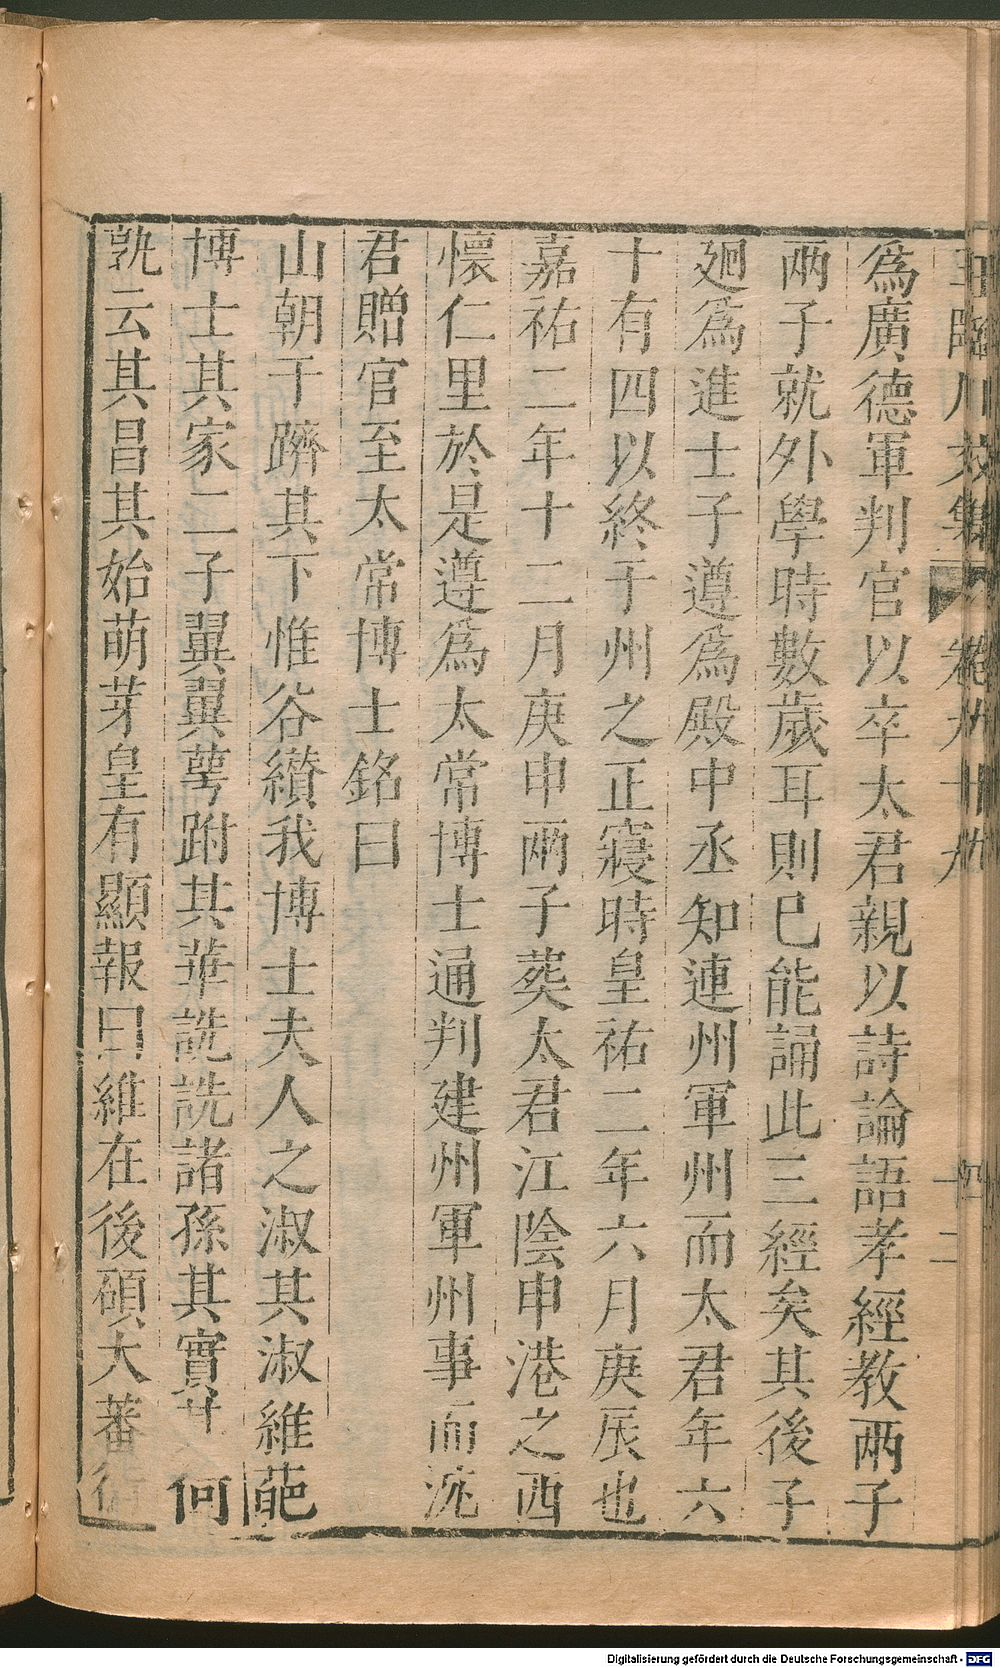 王臨川文集 卷九十九 十二
爲廣德軍判官以卒太君親以詩論語孝經教兩子
兩子就外學時數歲耳則已能誦此三經矣其後子
廻爲進士子遵爲殿中丞知連州軍州而太君年六
十有四以終于州之正寢時皇祐二年六月庚辰也
嘉祐二年十二月庚申兩子葬太君江陰申港之西
懷仁里於是遵爲太常博士通判建州軍州事而沈
君贈官至太常博士銘曰
山朝于躋其下惟谷纉我博士夫人之淑其淑維葩
博士其家二子翼翼萼跗其華詵詵諸孫其實其何
孰云其昌其始萌芽皇有顯報曰維在後碩大蕃衍
Digitalisierung gefördert durch die Deutsche Forschungsgemeinschaft - DFG